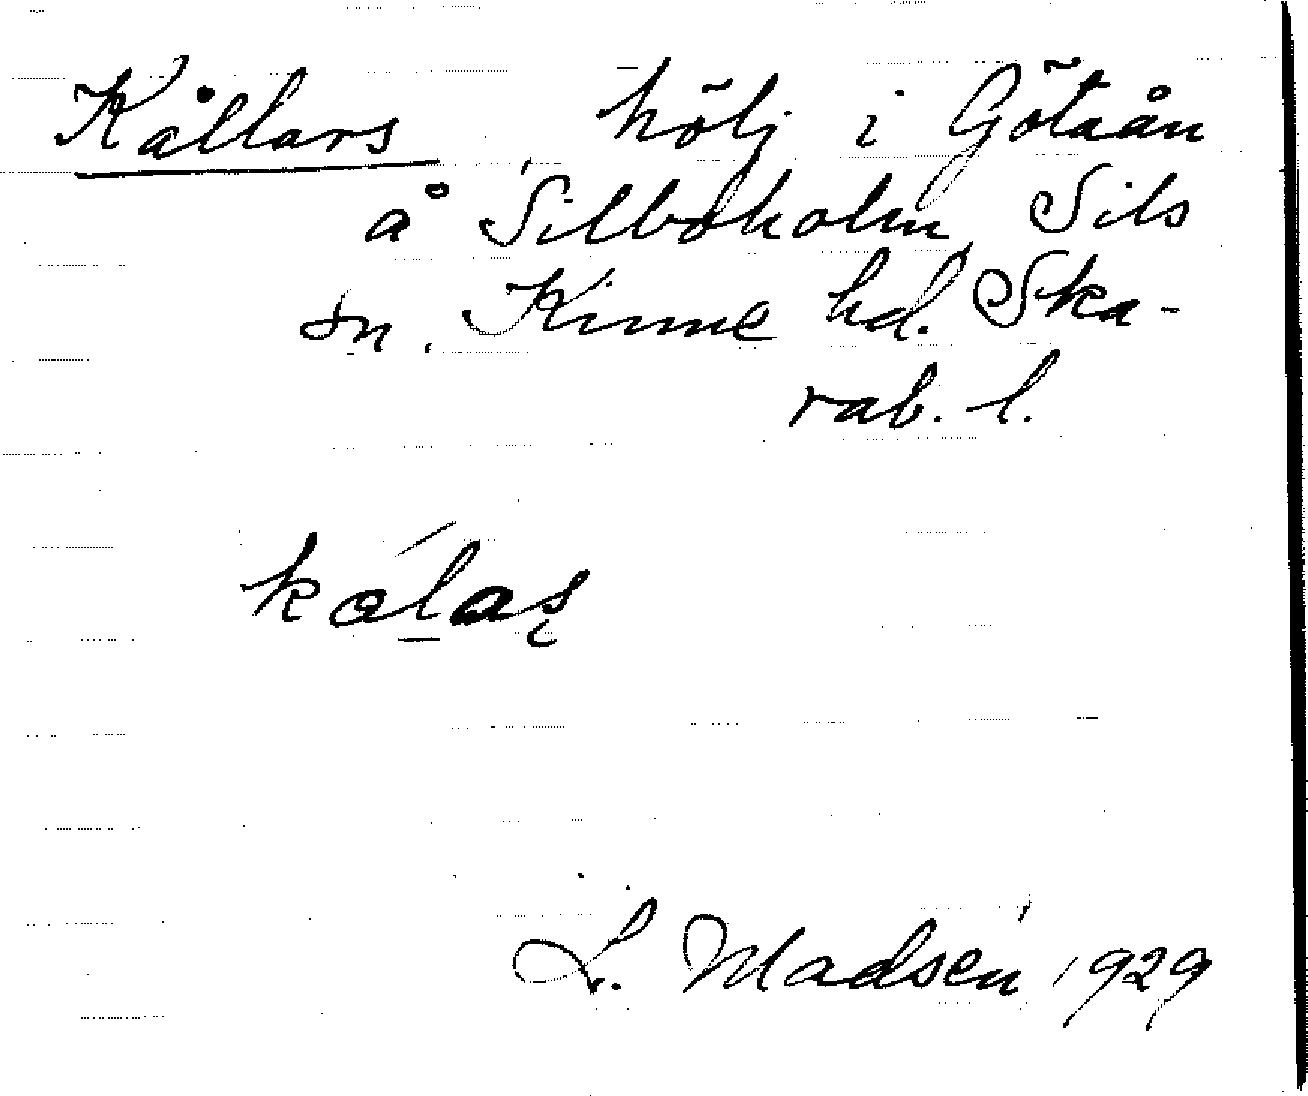 Kållars hölj i Götaån
å Silboholm Sils
sn. Kinne hd. Ska-
rab. l.
kålas
L. Madsén 1929